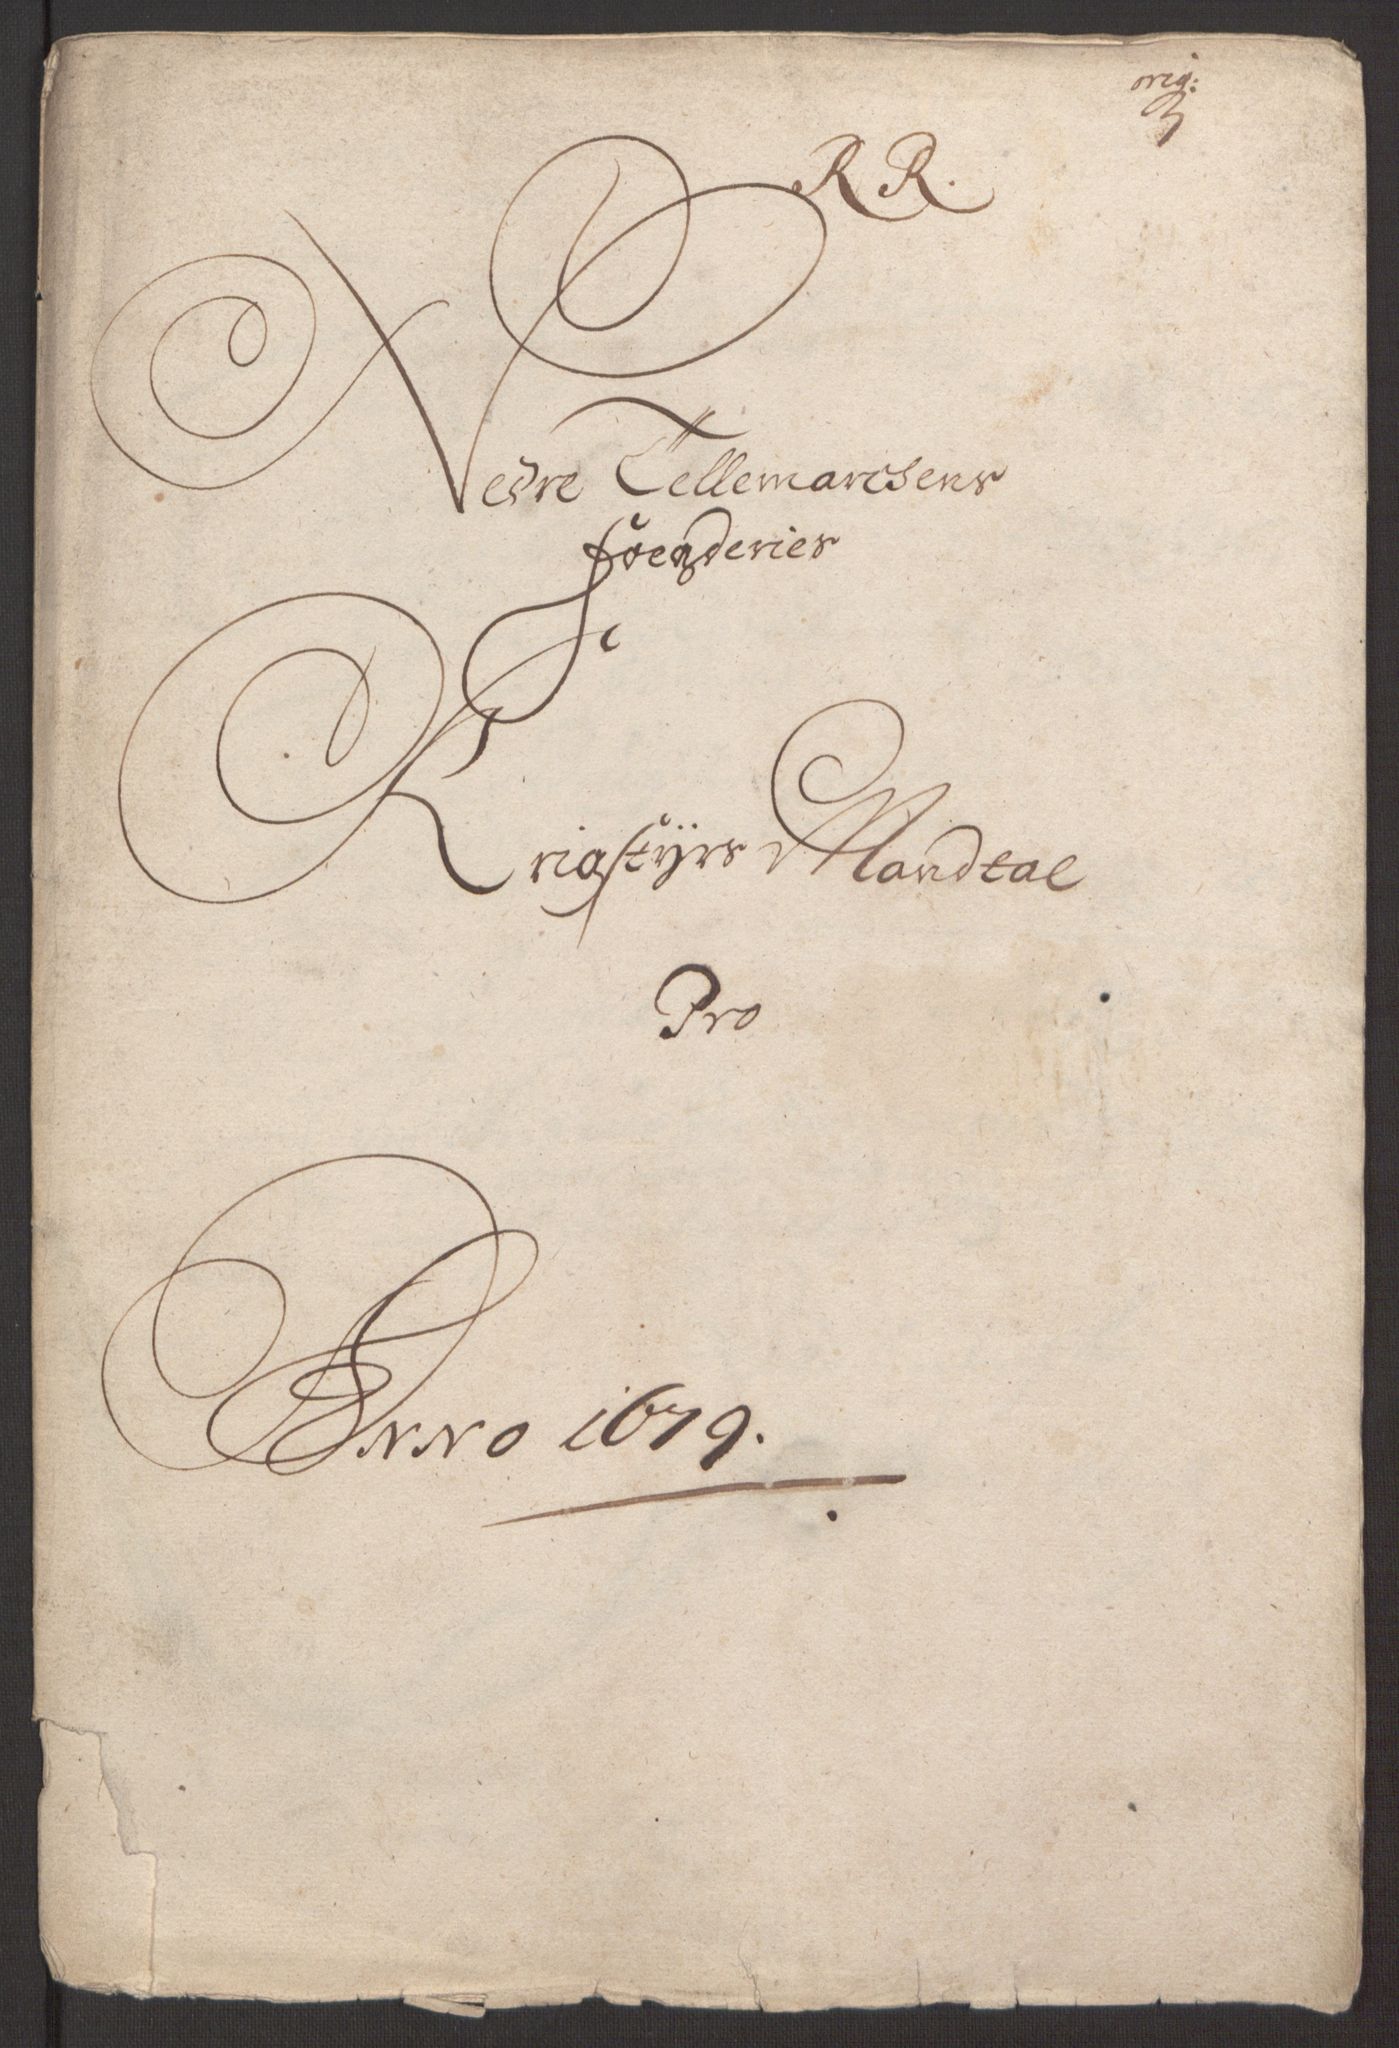 orig:
R R.
Nedre Tellemarchens
foegderies
Krigstÿrs Mandtal
Pro
Anno 1679.